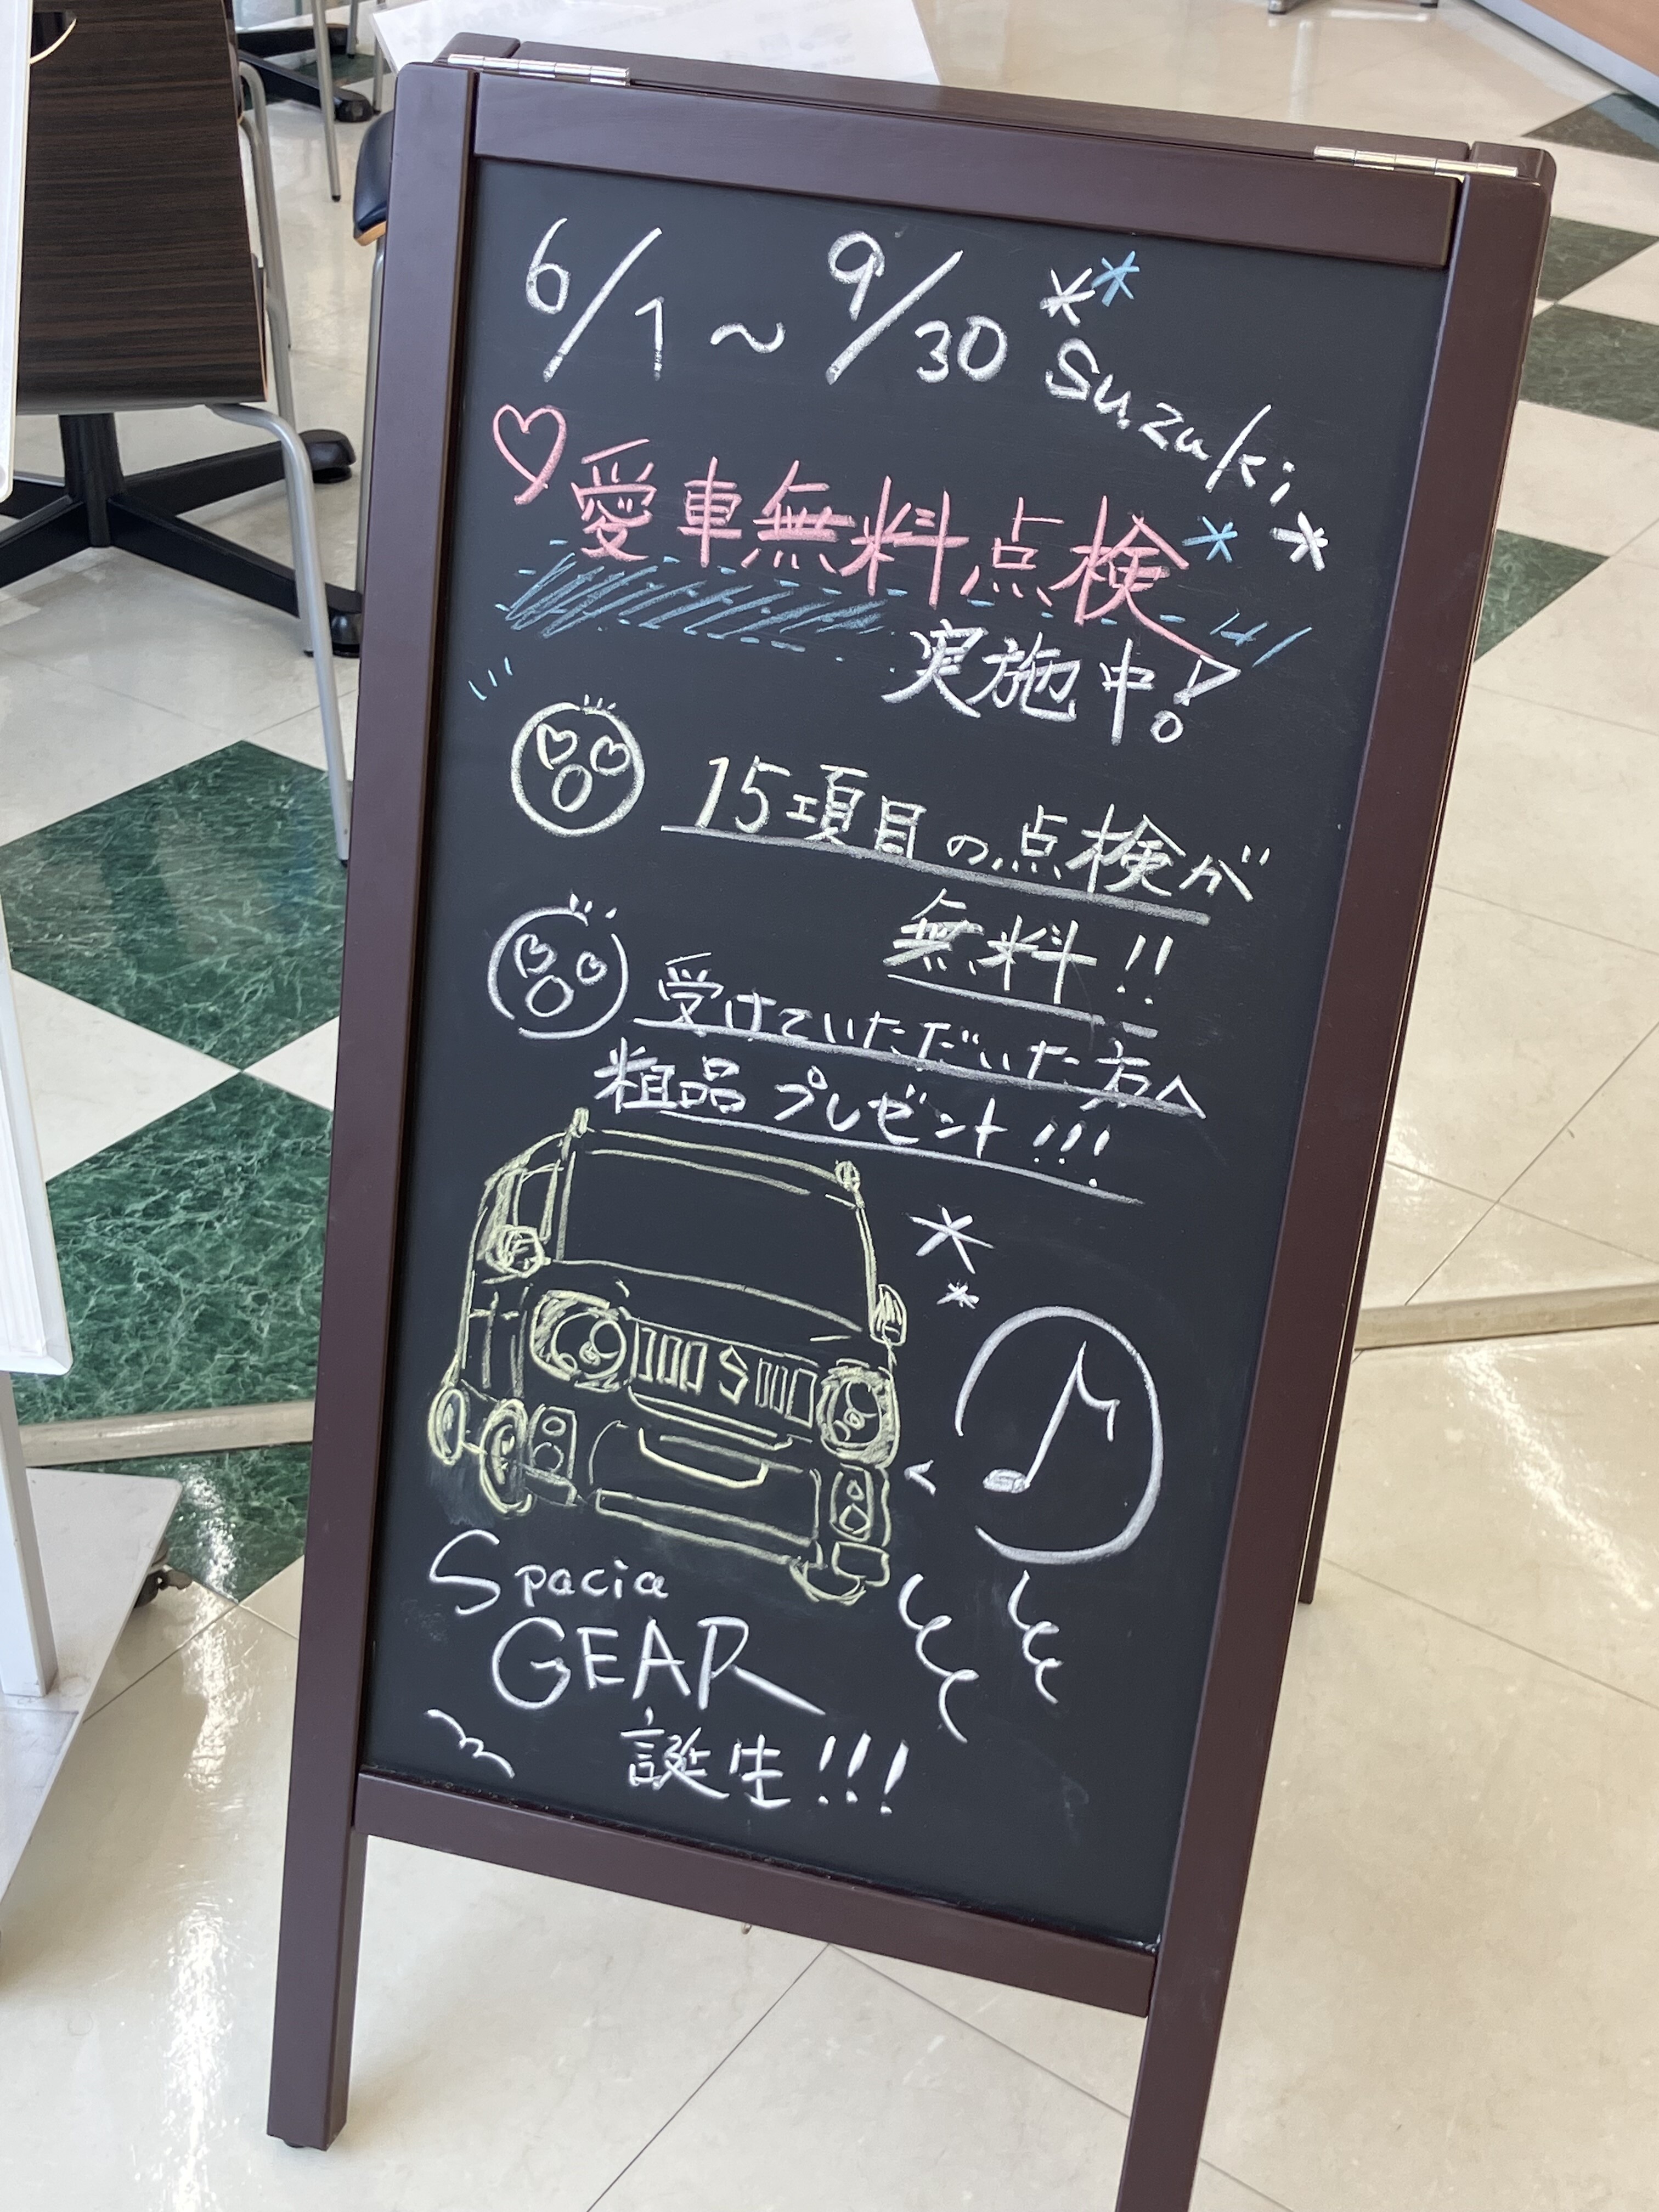 6/1～9/30 Suzuki
愛車無料点検
実施中!
15項目の点検が
無料!!
受けていただいた方へ
粗品プレゼント!!!
S
Spacia
GEAR
誕生!!!